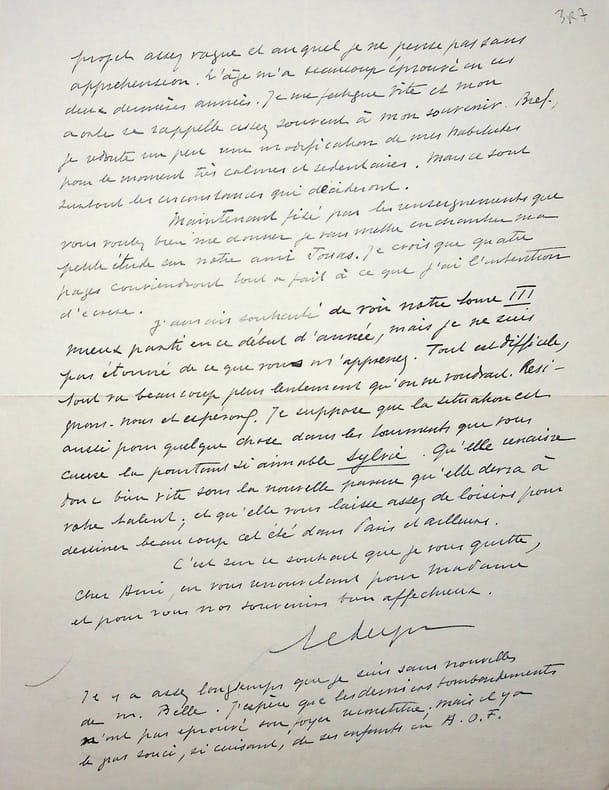 3R7
projet assez vague et auquel je ne pense pas sans
appréhension. L'âge m'a beaucoup éprouvé en ces
deux dernières années. Je me fatigue vite et mon
se rappelle assez souvent à mon souvenir. Bref,
je redoute un peu une modification de mes habitudes
pour le moment très calmes et sédentaires. Mais ce sont
surtout les circonstances qui décideront.
Maintenant fixé par les renseignements que
vous voulez bien me donner je vais mettre en chantier ma
petite étude sur notre ami Jouas. Je crois que quatre
pages conviendront tout à fait à ce que j'ai l'intention
d'écrire.
J'aurais souhaité de voir notre tome III
mieux parti en ce début d'année, mais je ne suis
pas étonné de ce que vous m'apprenez. Tout est difficile,
tout va beaucoup plus lentement qu'on ne voudrait. Rési-
gnons-nous et espérons. Je suppose que la situation est
aussi pour quelque chose dans les tourments que vous
cause la pourtant si aimable Sylvie. Qu'elle
donc bien vite sous la nouvelle parure qu'elle devra à
votre talent, et qu'elle vous laisse assez de loisirs pour
dessiner beaucoup cet été dans Paris et ailleurs.
C'est sur ce souhait que je vous quitte,
cher Ami, en vous renouvelant pour Madame
et pour vous nos souvenirs bien affectueux.
Il y a assez longtemps que je suis sans nouvelles
de M. Belle. J'espère que les derniers bombardements
n'ont pas éprouvé son foyer reconstitué. mais il y a
le gros souci, si cuisant, de ses enfants en A.O.F.